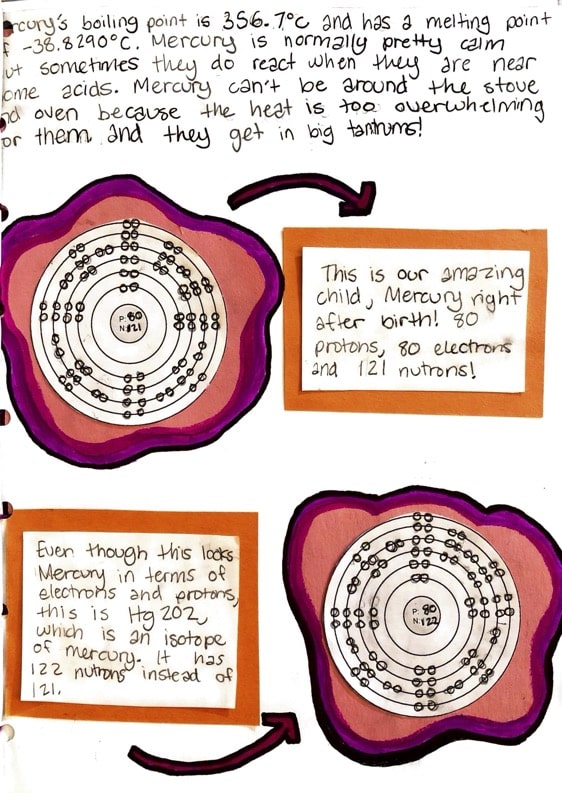 rcury's boiling point is 356.7°C and has a melting point
f -38.8290°C. Mercury is normally pretty calm
ut sometimes they do react when they are near
ome acids. Mercury can't be around the stove
nd oven because the heat is too overwhelming
or them and they get in big tantrums!
P: 80
N: 121
This is our amazing
child, Mercury right
after birth! 80
protons, 80 electrons
and 121 nutrons!
Even though this looks
Mercury in terms of
electrons and protons,
this is Hg 202,
which is an isotope
of mercury. It has
122 nutrons instead of
121.
P: 80
N: 122